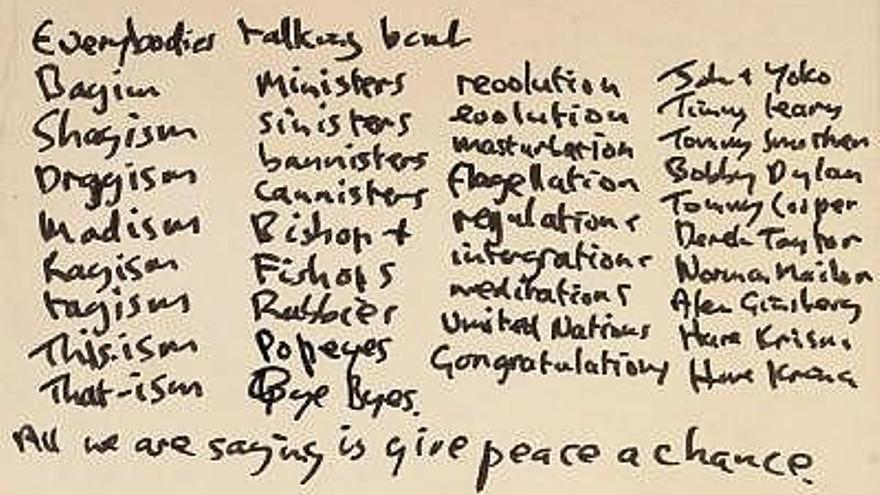 Everybodies talking bout
Bagism
Shagism
Draggism
Madism
Ragism
tagism
This-ism
That-ism
Ministers
sinisters
bannisters
cannisters
Bishop +
Fishops
Rabbies
Popeyes
Bye Byes.
revolution
evolution
masturbation
flagellation
regulations
intergrations
meditations
United Nations
Congratulations
John + Yoko
Timmy Leary
Tommy Smothers
Bobby Dylan
Tommy Cooper
Derek Taylor
Norman Mailer
Alen Ginsberg
Hare Krisna
Hare
All we are saying is give peace a chance.